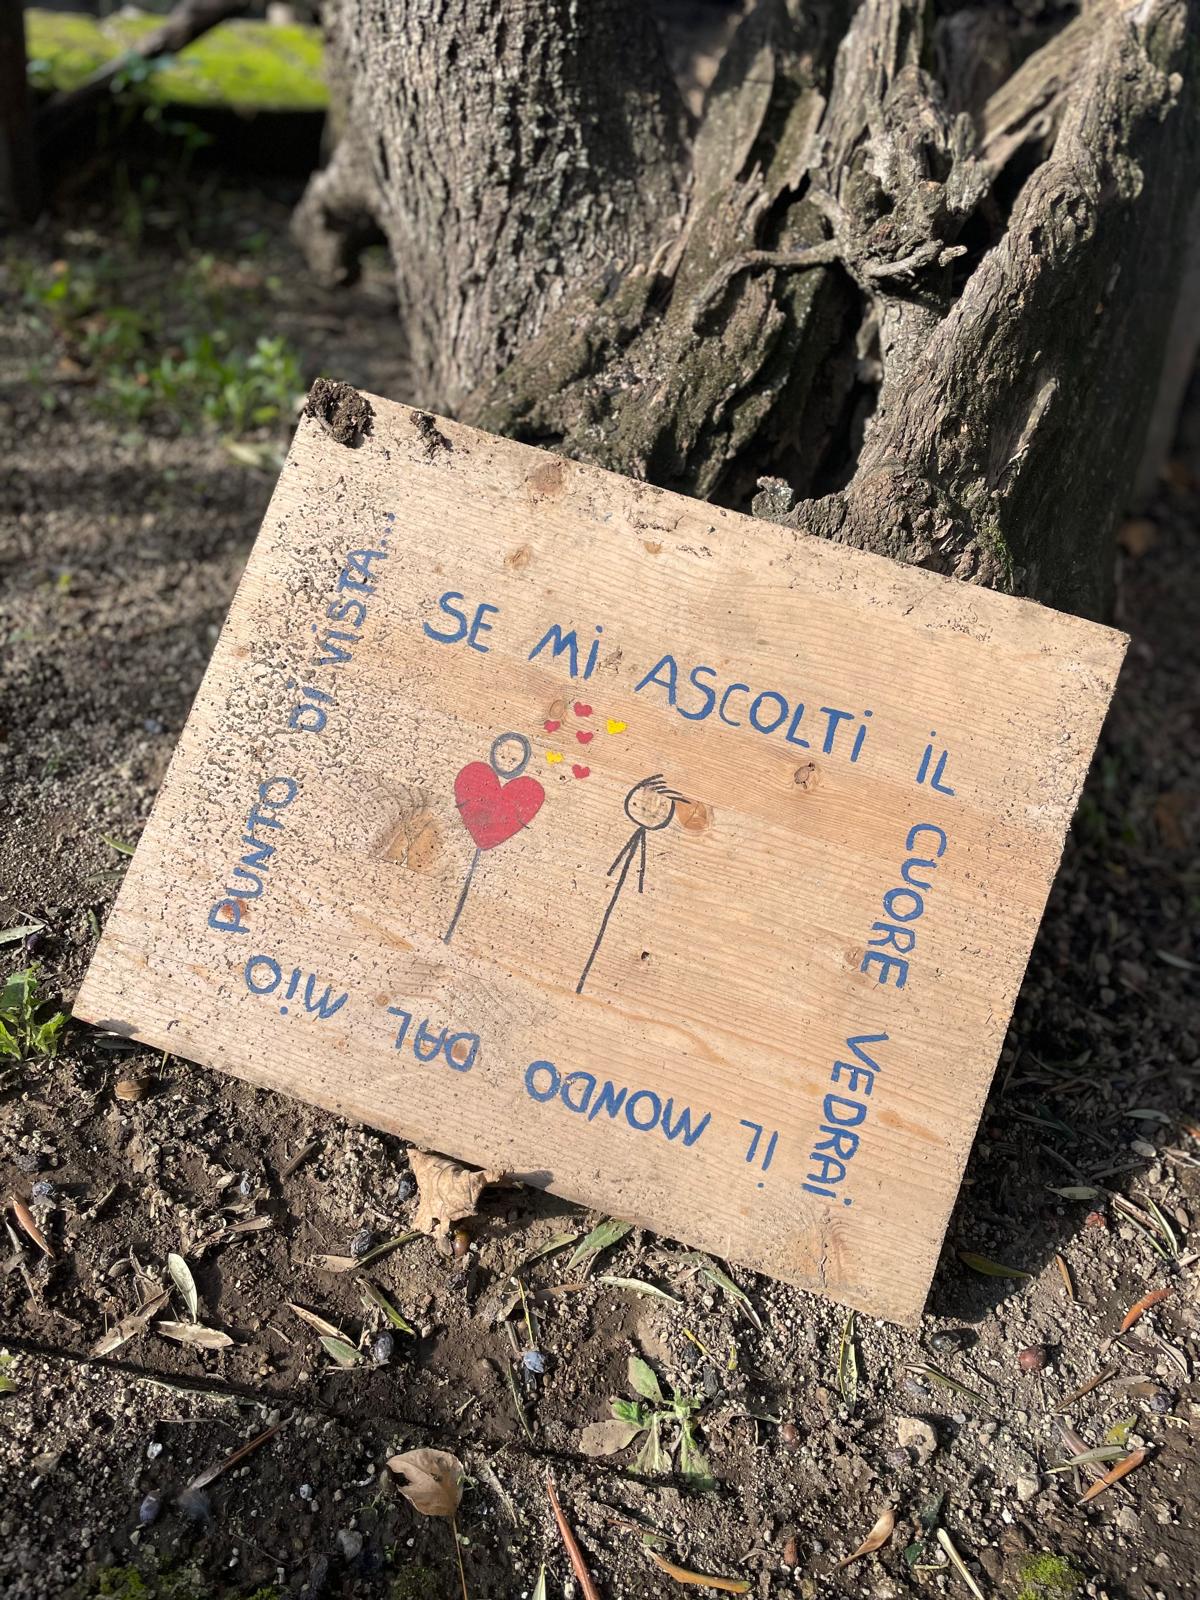 SE Mi ASCOLTi iL
CUORE VEDRAi
iL MONDO DAL Mio
PUNTO Di ViSTA...